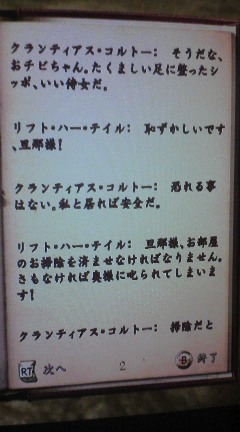 クランティアス・コルトー： そうだな、
おチビちゃん。たくましい足に整ったシ
ッポ、いい侍女だ。
リフト・ハー・テイル： 恥ずかしいです
、旦那様！
クランティアス・コルトー： 恐れる事
はない。私と居れば安全だ。
リフト・ハー・テイル： 旦那様、お部屋
のお掃除を済ませなければなりません。
さもなければ奥様に叱られてしまいま
す！
クランティアス・コルトー： 掃除だと
RT 次へ
2
B 終了